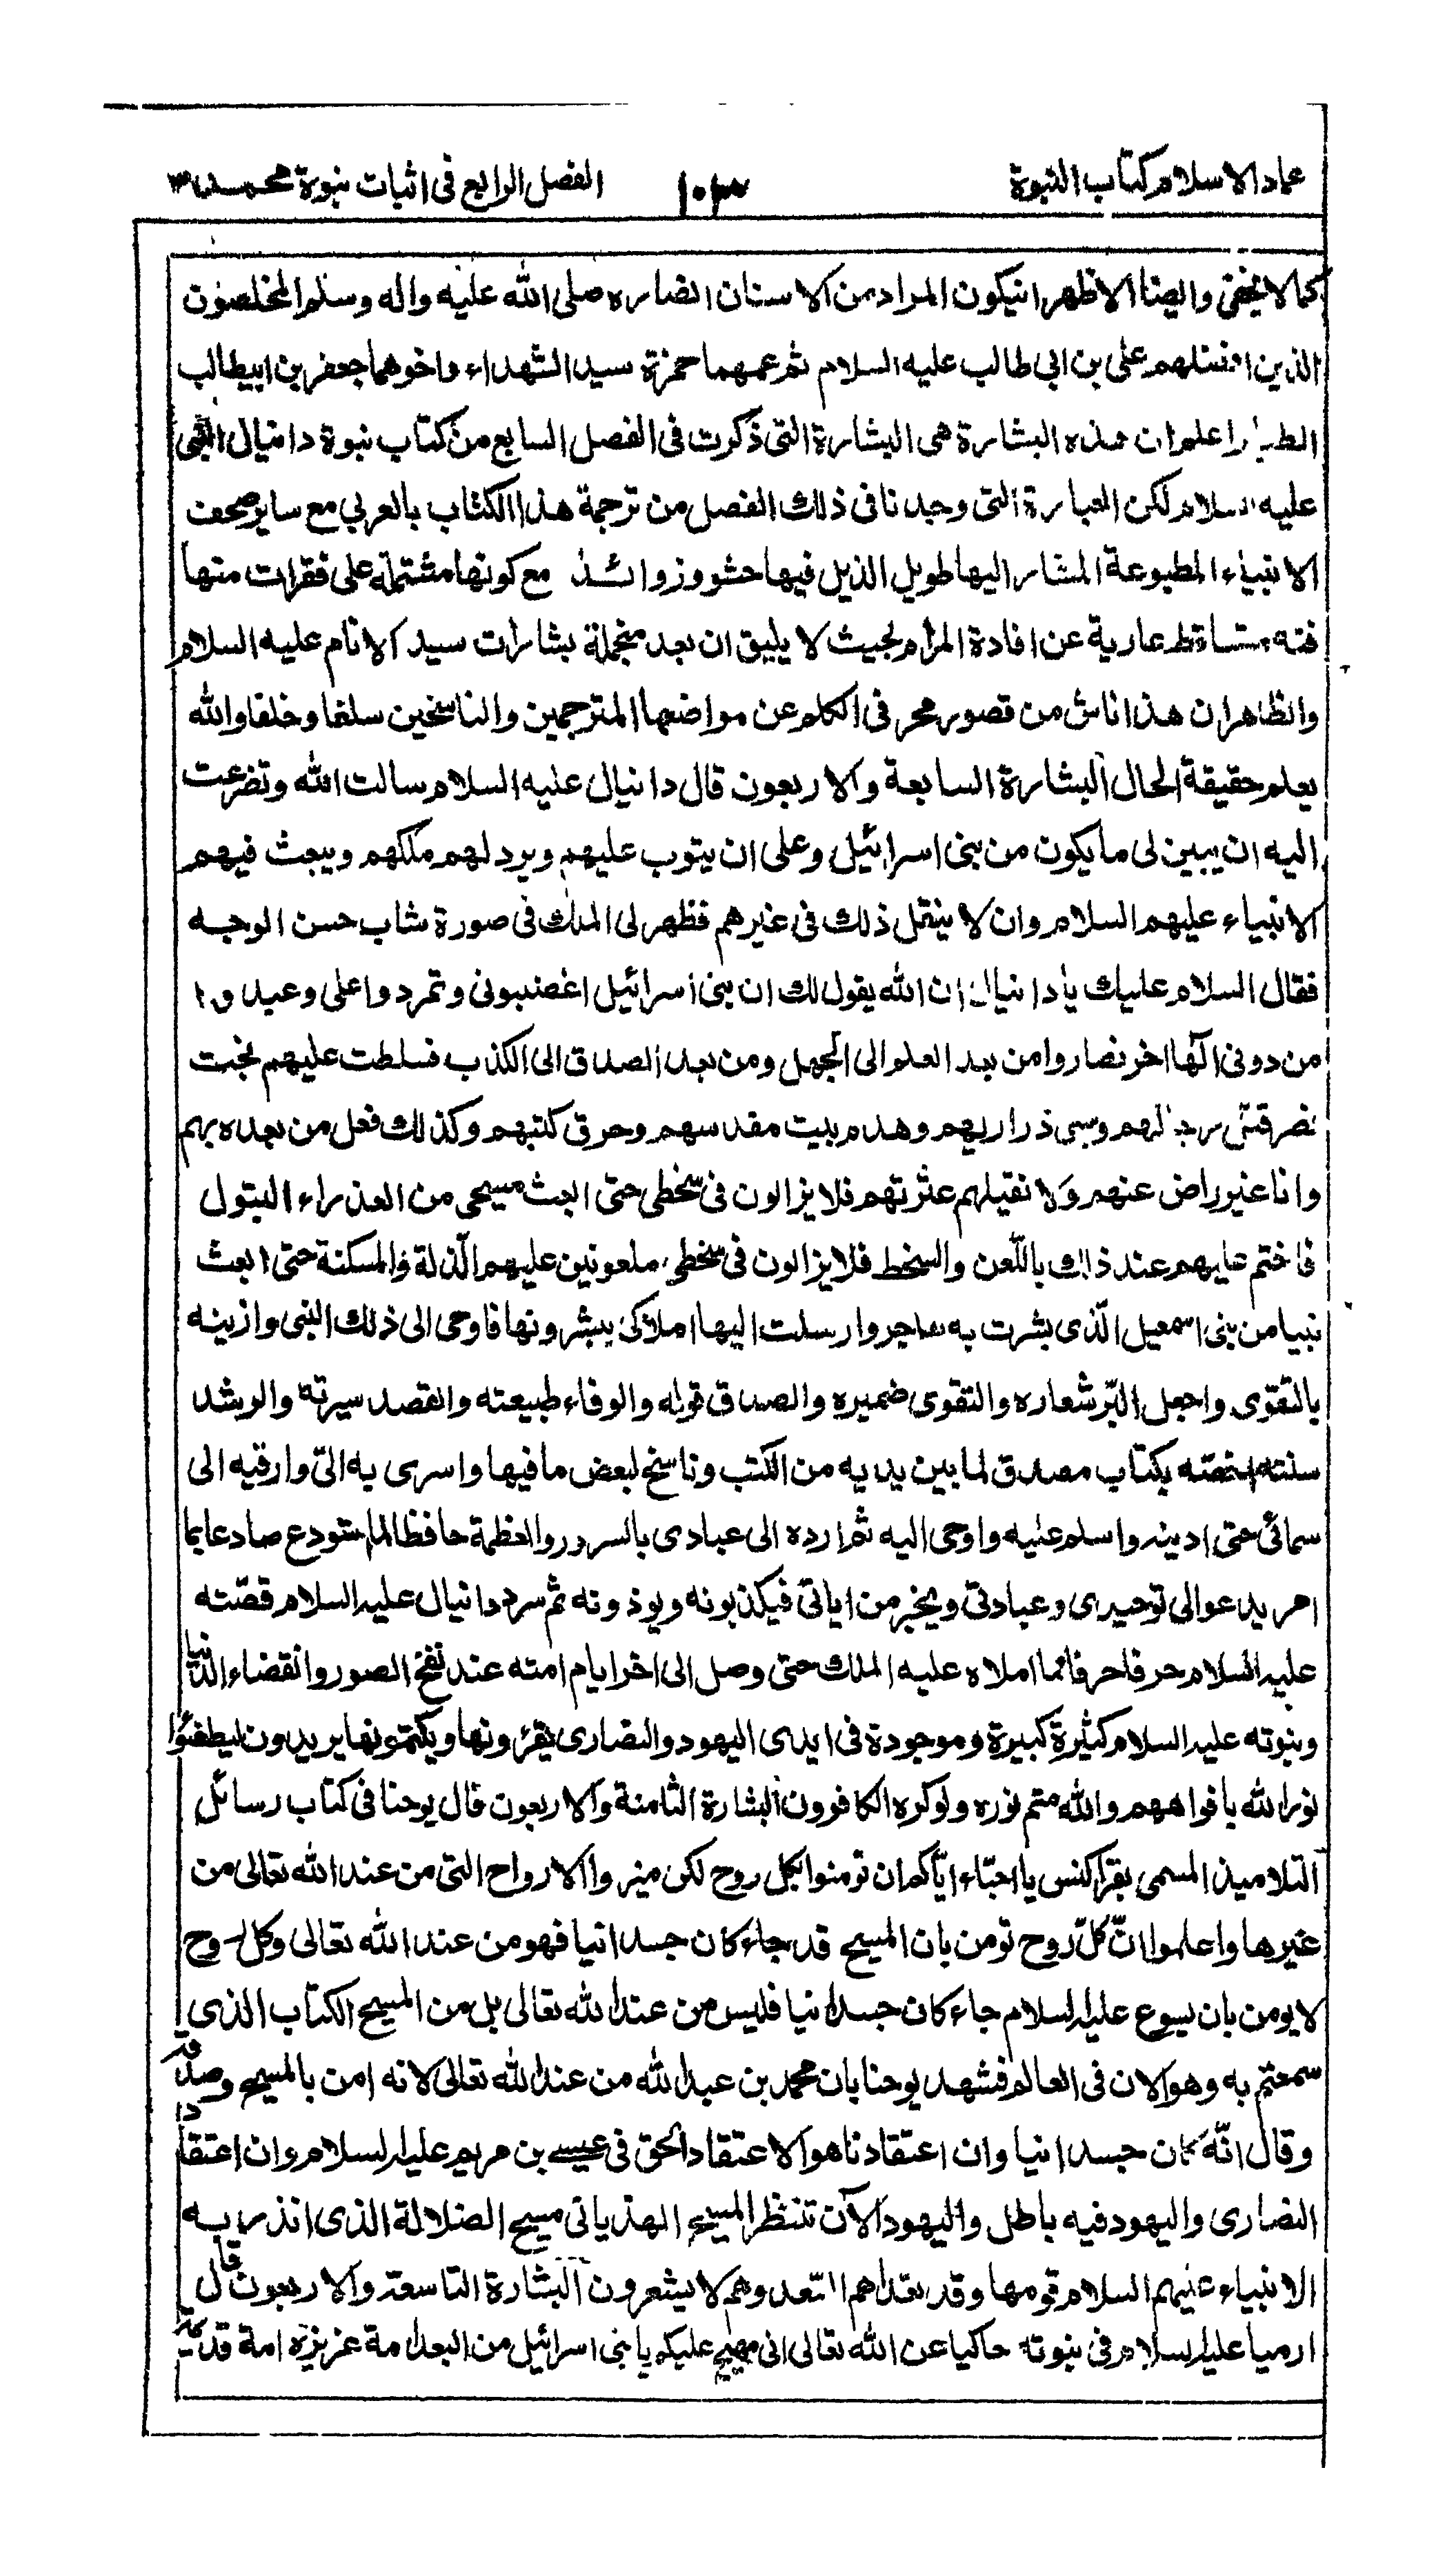 عماد الاسلام كتاب النبوة ١٠٣ الفصل الرابع فى اثبات نبوة محمد
كما لا يخفى وايضا الاظهر ان يكون المراد من الاسنان انصاره صلى الله عليه واله وسلم المخلصون
الذين افضلهم على بن ابى طالب عليه السلام ثم عمهما حمزة سيد الشهداء واخوهما جعفر بن ابيطالب
الطيار اعلم ان هذه البشارة هى البشارة التى ذكرت فى الفصل السابع من كتاب نبوة دانيال النبى
عليه السلام لكن العبارة التى وجدنا فى ذلك الفصل من ترجمة هذا الكتاب بالعربي مع ساير صحف
الانبياء المطبوعة المشار اليها طويل الذيل فيها حشو وزوائد مع كونها مشتملة على فقرات منها
متساقط عارية عن افادة المرام بحيث لا يليق ان يعد منجملة بشارات سيد الانام عليه السلام
والظاهر ان هذا ناش من قصور محر فى الكلم عن مواضعها المترجمين والناسخين سلفا وخلفا والله
يعلم حقيقة الحال البشارة السابعة والاربعون قال دانيال عليه السلام سالت الله وتضرعت
اليه ان يبين لى ما يكون من بنى اسرائيل وعلى ان يتوب عليهم ويرد لهم ملكهم ويبعث فيهم
الانبياء عليهم السلام وان لا ينقل ذلك فى غيرهم فظهر لى الملك فى صورة شاب حسن الوجه
فقال السلام عليك يا دانيال ان الله يقول لك ان بنى اسرائيل اغضبونى وتمردوا على وعبدوا
من دونى الٓها اخر فصاروا من بعد العلم الى الجهل ومن بعد الصدق الى الكذب فسلطت عليهم بخت
نصر فقتل رجالهم وسبى ذراريهم وهدم بيت مقدسهم وحرق كتبهم وكذلك فعل من بعده بهم
وانا غير راض عنهم ولا نقيلهم عثرتهم فلا يزالون فى سخطى حتى ابعث مسيحى من العذراء البتول
فاختم عليهم عند ذلك باللّعن والسخط فلا يزالون فى سخطى ملعونين عليهم الذّلة والمسكنة حتى ابعث
نبيا من بنى اسمعيل الّذى بشرت به هاجر وارسلت اليها املاكى يبشرونها فاوحى الى ذلك النبى وازينه
بالتقوى واجعل البّر شعاره والتقوى ضميره والصدق قوله والوفاء طبيعته والقصد سيرته والرشد
سنته اخصّه بكتاب مصدق لما بين يديه من الكتب وناسخ لبعض ما فيها واسرى به الىّ وارقيه الى
سمائى حتى ادنيه واسلم عليه واوحى اليه ثم ارده الى عبادى بالسرور والعظمة حافظا لما استودع صادعا بما
امر يدعو الى توحيدى وعبادتى ويخبر من اياتى فيكذبونه ويوذونه ثم سرد دانيال عليه السلام قصّته
عليه السلام حرفا حرفا مما املاه عليه الملك حتى وصل الى اخر ايام امته عند نفخ الصور وانقضاء الدنيا
ونبوته عليه السلام كثيرة كبيرة وموجودة فى ايدى اليهود والنصارى يقرؤنها ويكتمونها يريدون ليطفئوا
نور الله بافواههم والله متم نوره ولو كره الكافرون البشارة الثامنة والاربعون قال يوحنا فى كتاب رسائل
التلاميذ المسمى بقراكنس يا احبّاء ايّاكم ان تومنوا بكل روح لكن ميزوا الارواح التى من عند الله تعالى من
غيرها واعلموا انّ كلّ روح تومن بان المسيح قد جاء كان جسدانيا فهو من عند الله تعالى وكل روح
لا يومن بان يسوع عليه السلام جاء كان جسدانيا فليس من عند الله تعالى بل من المسيح الكتاب الذى
سمعتم به وهو الان فى العالم فشهد يوحنا بان محمد بن عبد الله من عند الله تعالى لانه امن بالمسيح وصدقه
وقال انّه كان جسدانيا وان اعتقادنا هو الاعتقاد الحق فى عيسى بن مريم عليه السلام وان اعتقاد
النصارى واليهود فيه باطل واليهود الآن تنتظر المسيح الهذيانى مسيح الضلالة الذى انذر به
الانبياء عليهم السلام قومها وقد وهم لا يشعرون البشارة التاسعة والاربعون قال
ارميا عليه السلام فى نبوته حاكيا عن الله تعالى انى مهيج عليكم يا بنى اسرائيل من البعد امة عزيزة امة قديمة